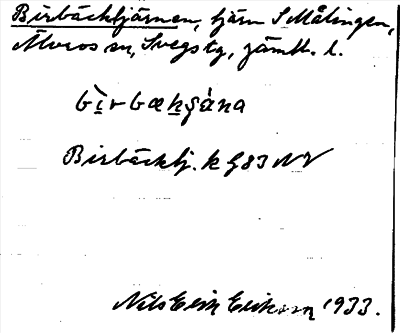 Birbäcktjärnen, tjärn S Målingen,
Älvros sn, Svegs tg, Jämtl. l.
bìrbækʂána
Birbäcktj. k G83 NV
Nils Erik Erikson 1933.